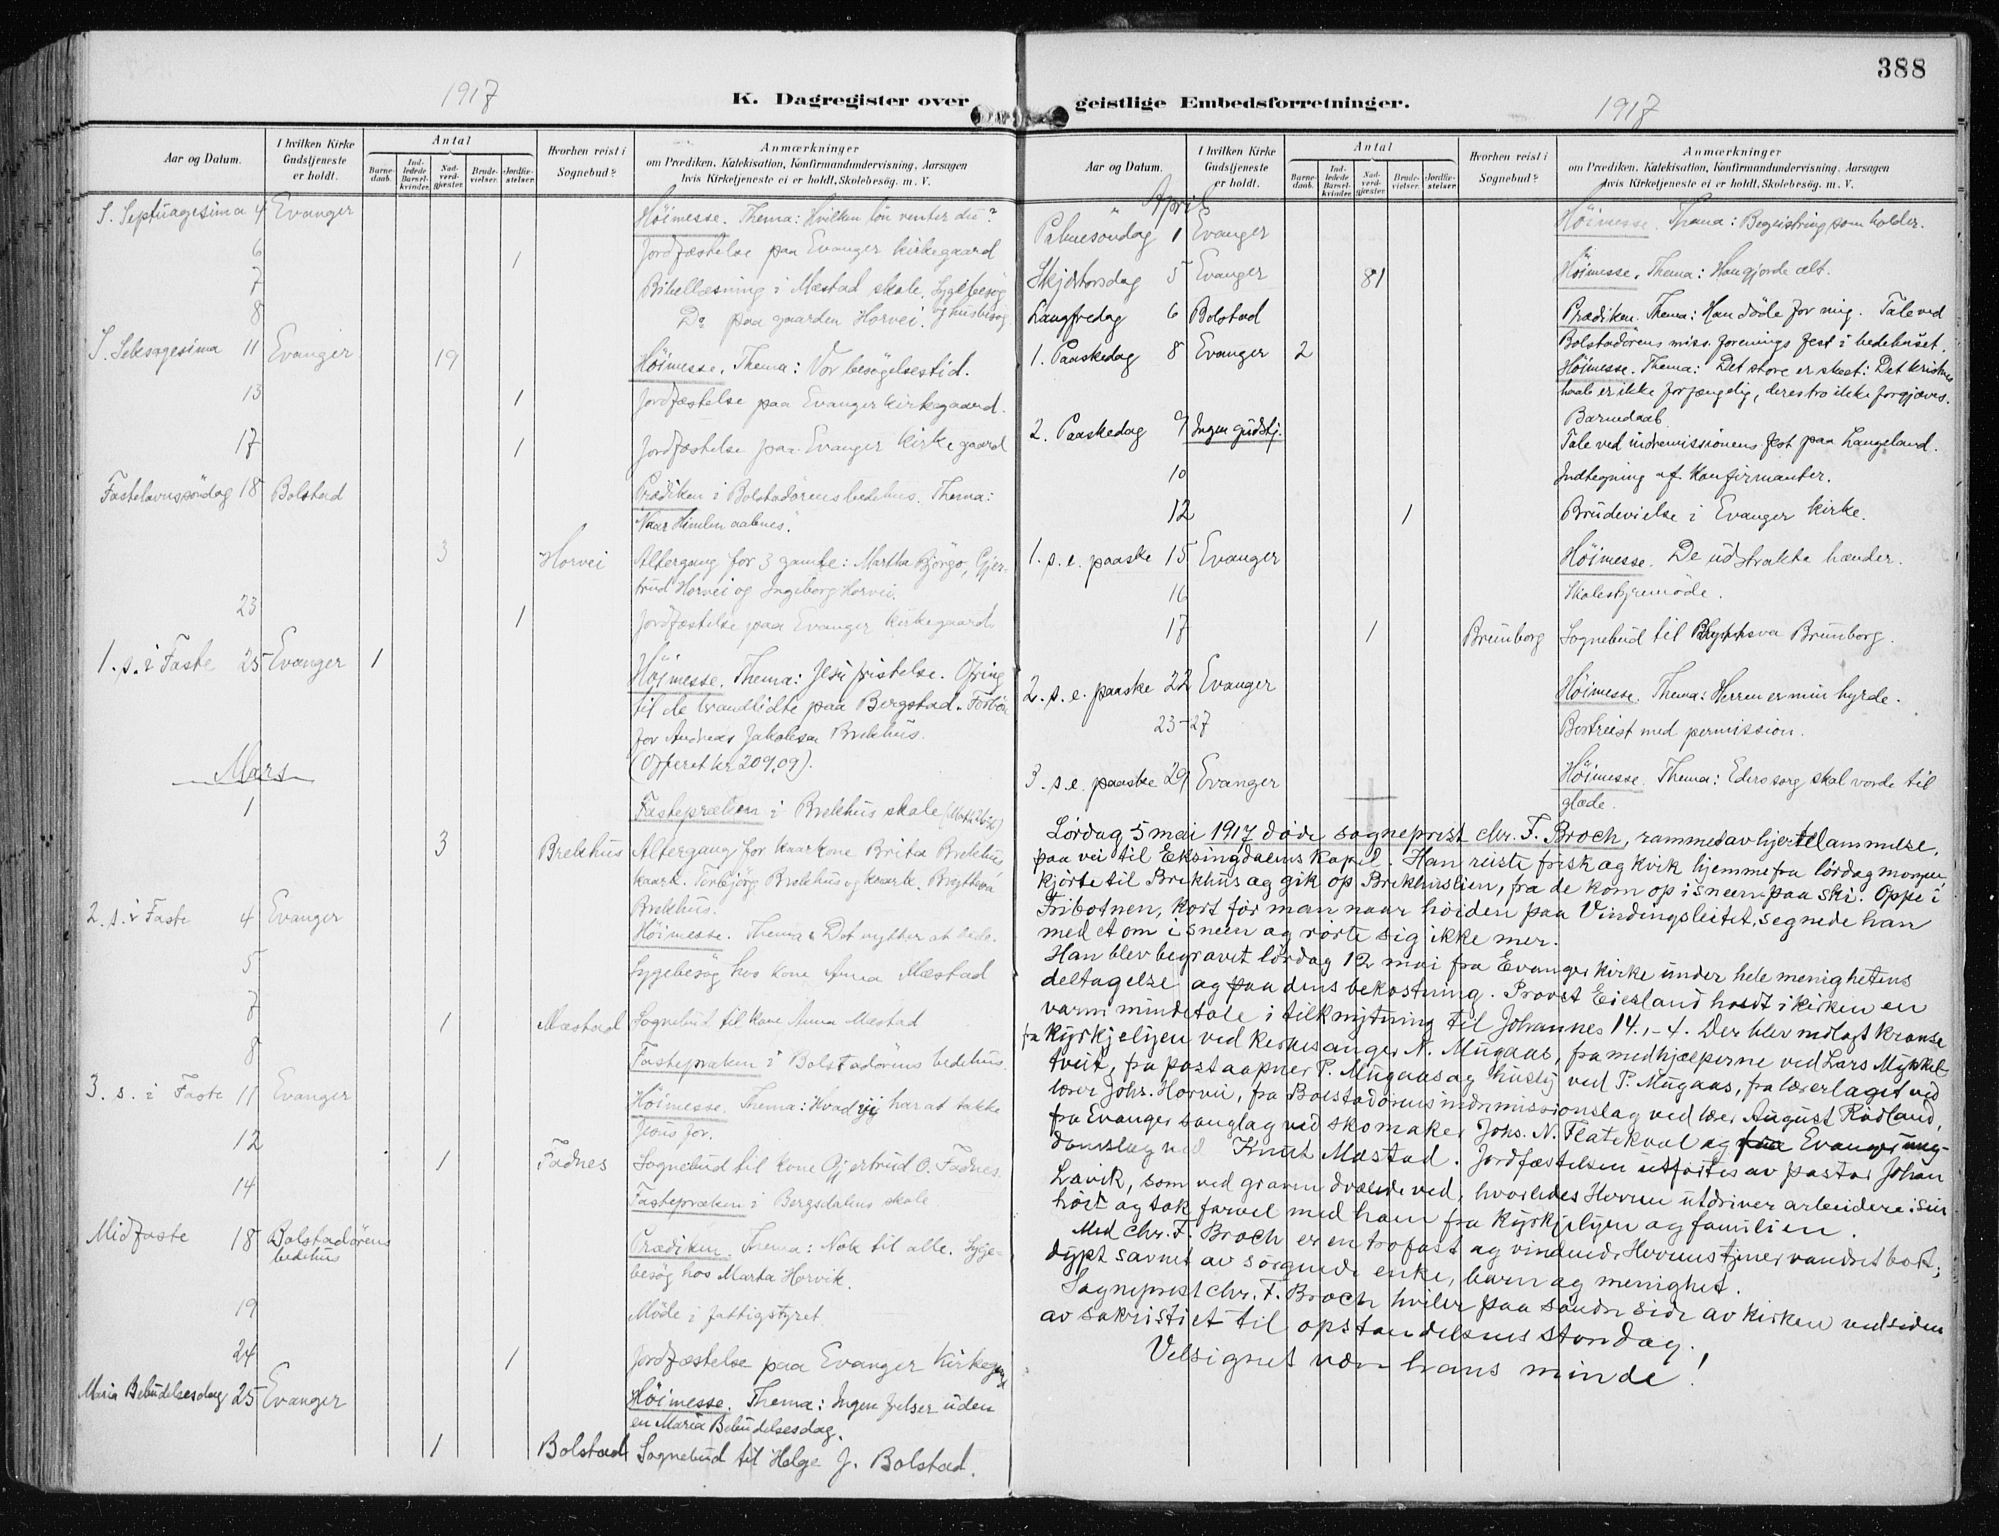 388
1917
K. Dagregister over
geistlige Embedsforretninger.
1917
Aar og Datum.
I hvilken Kirke Gudstjeneste er holdt.
Antal
Barne-daab.
Ind-ledede Barsel-kvinder.
Nad-verd-gjæster.
Brude-vielser.
Jordfæ-stelser.
Hvorhen reist i Sognebud?
Anmærkninger
om Prædiken, Katekisation, Konfirmandundervisning, Aarsagen
hvis Kirketjeneste ei er holdt, Skolebesøg. m. V.
S. Septuagesima 4 Evanger Höimesse. Thema: Hvilken lön venter du?
6 1 Jordfæstelse paa Evanger Kirkegaard
7 Bibellæsning i Mæstad skole. Sygebesög og husbesög
8 Do paa gaarden Horvei.
S. Seksagesima 11 Evanger 19 Höimesse. Thema: Vor besögelsestid.
13 1 Jordfæstelse paa Evanger Kirkegaard.
17 1 Jordfæstelse paa Evanger Kirkegaard
Fastelavnssöndag 18 Bolstad Prædiken i Bolstadörens bedehus. Thema:
Naar Himlen aabnes.
3 Horvei Altergang for 3 gamle: Martha Björgo, Gjer-
trud Horvei og Ingeborg Horvei.
23 1 Jordfæstelse paa Evanger Kirkegaard.
1. s. i Faste 25 Evanger 1 Höimesse. Thema: Jesu fristelse. Ofring
til de brandlidte paa Bergstad. Forbön
for Andreas Jakobsen Brekhus.
(Offeret kr 209,09).
Mars
1 Fastepræken i Brekhus skole
3 Brekhus Altergang for kaarkone Brita Brekhus
kaark. Torbjörg Brekhus og kaark. Bryttevá
Brekhus.
2. s. i Faste 4 Evanger Höimesse. Thema: Det nytter at bede.
5 Sygebesög hos kone Anna Mæstad
7 1 Mæstad Sognebud til kone Anna Mæstad
8 Fastepræken i Bolstadörens bedehus.
3. s. i Faste 11 Evanger Höimesse. Thema: Hvad vi har at takke
Jesus for.
12 1 Fadnes Sognebud til kone Gjertrud O. Fadnes.
14 Fastepræken i Bergsdalens skole
Midfaste 18 Bolstadörens bedehus Prædiken. Thema: Nok til alle. Syge-
besög hos Marta Horvik.
19 Möde i fattigstyret.
24 1 Jordfæstelse paa Evanger Kirkegaard
Maria Bebudelsesdag 25 Evanger Höimesse. Thema: Ingen frelser uden
en Maria Bebudelsesdag.
1 Bolstad Sognebud til Helge J. Bolstad.
Aar og Datum.
I hvilken Kirke Gudstjeneste er holdt.
Antal
Barne-daab.
Ind-ledede Barsel-kvinder.
Nad-verd-gjæster.
Brude-vielser.
Jordfæ-stelser.
Hvorhen reist i Sognebud?
Anmærkninger
om Prædiken, Katekisation, Konfirmandundervisning, Aarsagen
hvis Kirketjeneste ei er holdt, Skolebesøg. m. V.
April
Palmesöndag 1 Evanger Höimesse. Thema: Begeistring som holder.
Skjærtorsdag 5 Evanger 81 Höimesse. Thema: Han gjorde alt.
Langfredag 6 Bolstad Prædiken. Thema: Han döde for mig. Tale ved
Bolstadörens miss. forenings fest i bedehuset.
1. Paaskedag 8 Evanger 2 Höimesse. Thema: Det store er skeet: Det kristnes
haab er ikke forfjængelig, deres tro ikke forgjæves.
Barnedaab.
2. Paaskedag 9 Ingen gudstj. Tale ved indremissionens fest paa Langeland.
10 Indtegning af Konfirmanter.
12 1 Brudevielse i Evanger Kirke.
1. s. e. paaske 15 Evanger Höimesse. De udstrakte hænder.
16 Skolestyremöde.
17 1 Brunborg Sognebud til Brytteva Brunborg.
2. s. e. paaske 22 Evanger Höimesse. Thema: Herren er min hyrde.
23-27 Bortreist med permission.
3. s. e. paaske 29 Evanger Höimesse. Thema: Eders sorg skal vorde til
glæde.
Lördag 5 mai 1917 döde sogneprest Chr. F. Broch, rammet av hjertelammelse,
paa vei til Eksingdalens kapel. Han reiste frisk og kvik hjemmefra lördag morgen,
kjörte til Brekhus og gik op Brekhuslien, fra de kom op i sneen paa ski. Oppe i
Fribotnen, kort för man naar höiden paa Vindingsleitet, segnede han
med et om i sneen og rörte sig ikke mer.
Han blev begravet lördag 12 mai fra Evanger kirke under hele menighetens
deltagelse og paa dens bekostning. Provst Eiesland holdt i kirken en
varm mindetale i tilknytning til Johannes 14, 1-4. Der blev nedlagt kranse
fra kyrkjelyen ved kirkesanger N. Mugaas, fra medhjælperne ved Lars Mykkel-
tveit, fra postaapner P. Mugaas og husly ved P. Mugaas, fra lærerlaget ved
lærer Johs. Horvei, fra Bolstadörens indremissionslag ved lærer August Rödland,
fra Evanger sanglag ved skomaker Johs. N. Flatekval og Evanger ung-
domslag ved Knut Mæstad. Jordfæstelsen utförtes av pastor Johan
Lavik, som ved graven dvælede ved, hvorledes Herren utdriver arbeidere i sin
höst og tok farvel med ham fra kyrkjelyen og familien.
Med Chr. F. Broch er en trofast og vindende Herrens tjener vandret bort;
dypt savnet av sörgende enke, barn og menighet.
Sogneprest Chr. F. Broch hviler paa söndre side av kirken ved siden
av sakristiet til opstandelsens stordag.
Velsignet være hans minde!